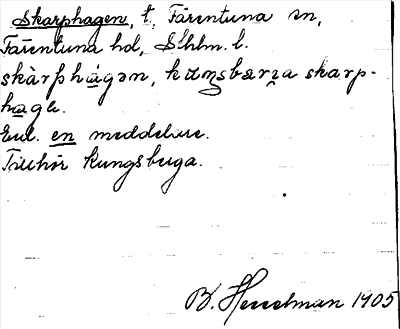 Skarphagen, t., Färentuna sn,
Färentuna hd, Sthlm. l.
skàrphágən, skarp-
haga.
Enl. en meddelare.
Tillhör Kungsberga.
B. Hesselman 1905